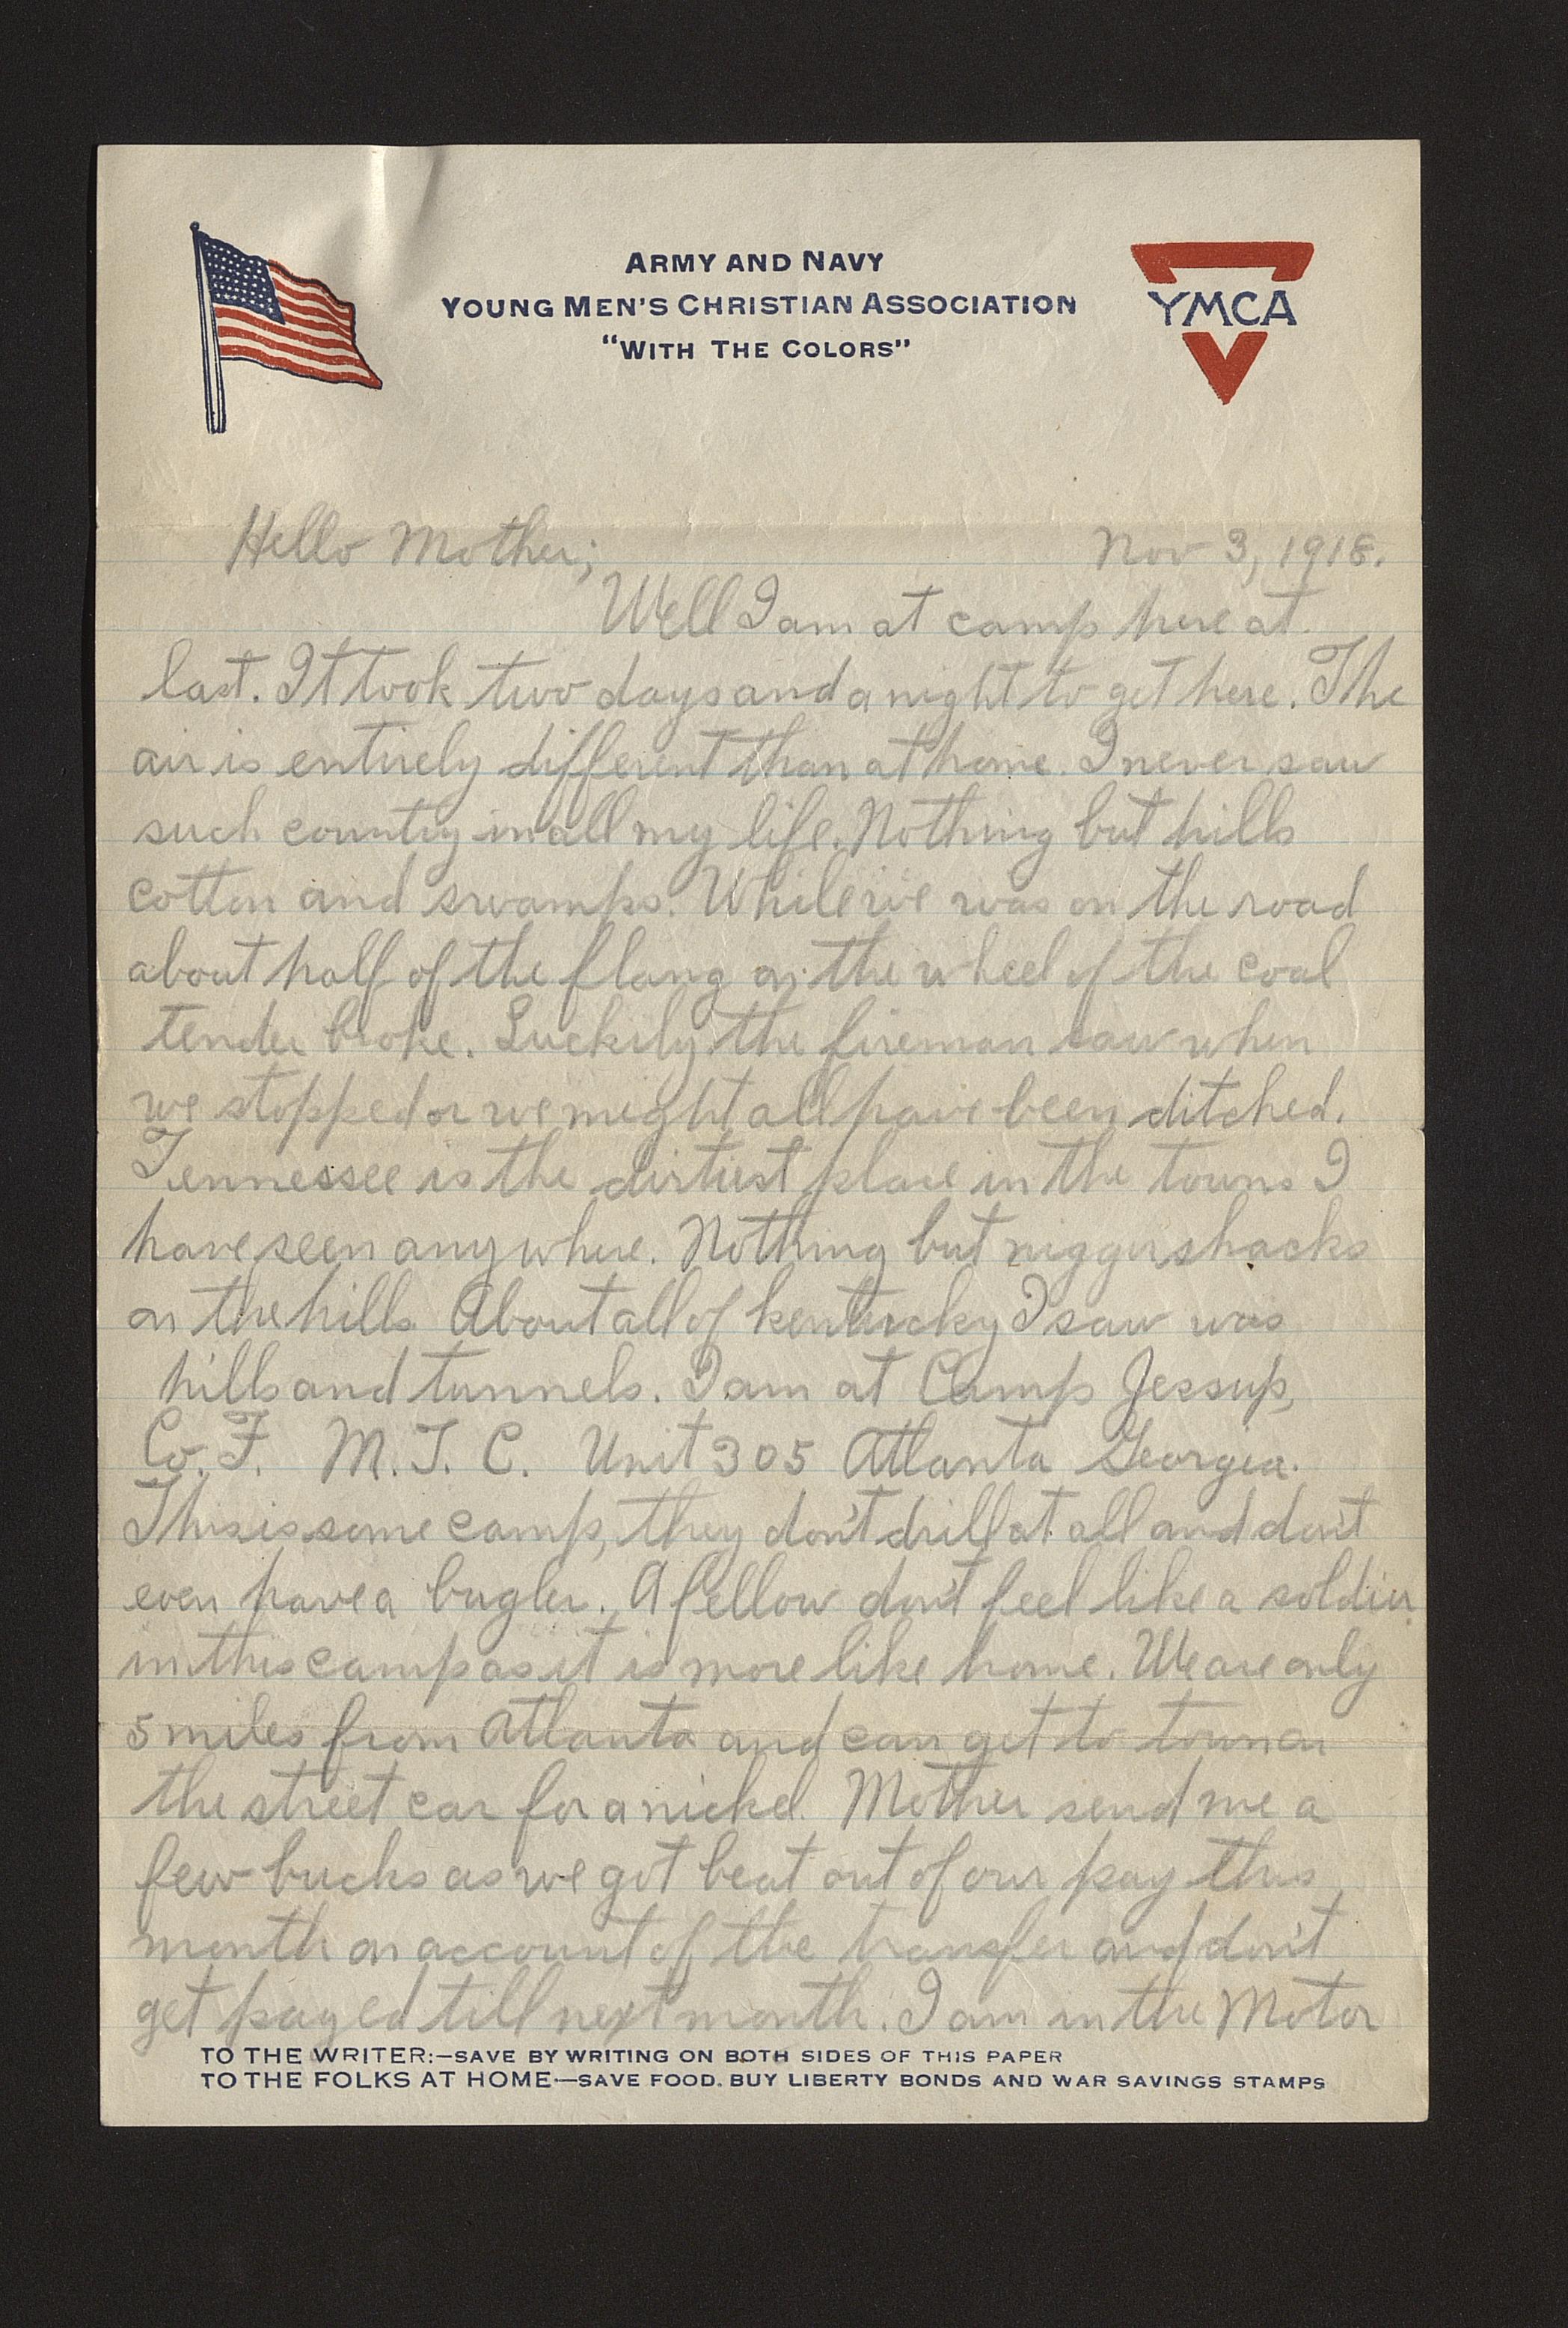 ARMY AND NAVY
YOUNG MEN'S CHRISTIAN ASSOCIATION
"WITH THE COLORS"
YMCA
Hello Mother; Nov 3, 1918.
Well I am at camp here at
last. It took two days and a night to get here. The
air is entirely different than at home. I never saw
such country in all my life. Nothing but hills
cotton and swamps. While we was on the road
about half of the flang on the wheel of the coal
tender broke. Luckily the fireman saw when
we stopped or we might all have been ditched.
Tennessee is the dirtiest place in the towns I
have seen anywhere. Nothing but nigger shacks
on the hills About all of kentucky I saw was
hills and tunnels. I am at Camp Jessup,
Co. F. M. T. C. Unit 305 Atlanta Georgia.
This is some camp, they don't drill at all and don't
even have a bugler. A fellow don't feel like a soldier
in this camp as it is more like home. We are only
5 miles from Atlanta and can get to town on
the street car for a nickel. Mother send me a
few bucks as we got beat out of our pay this
month on account of the transfer and don't
get payed till next month. I am in the Motor
TO THE WRITER:—SAVE BY WRITING ON BOTH SIDES OF THIS PAPER
TO THE FOLKS AT HOME—SAVE FOOD. BUY LIBERTY BONDS AND WAR SAVINGS STAMPS